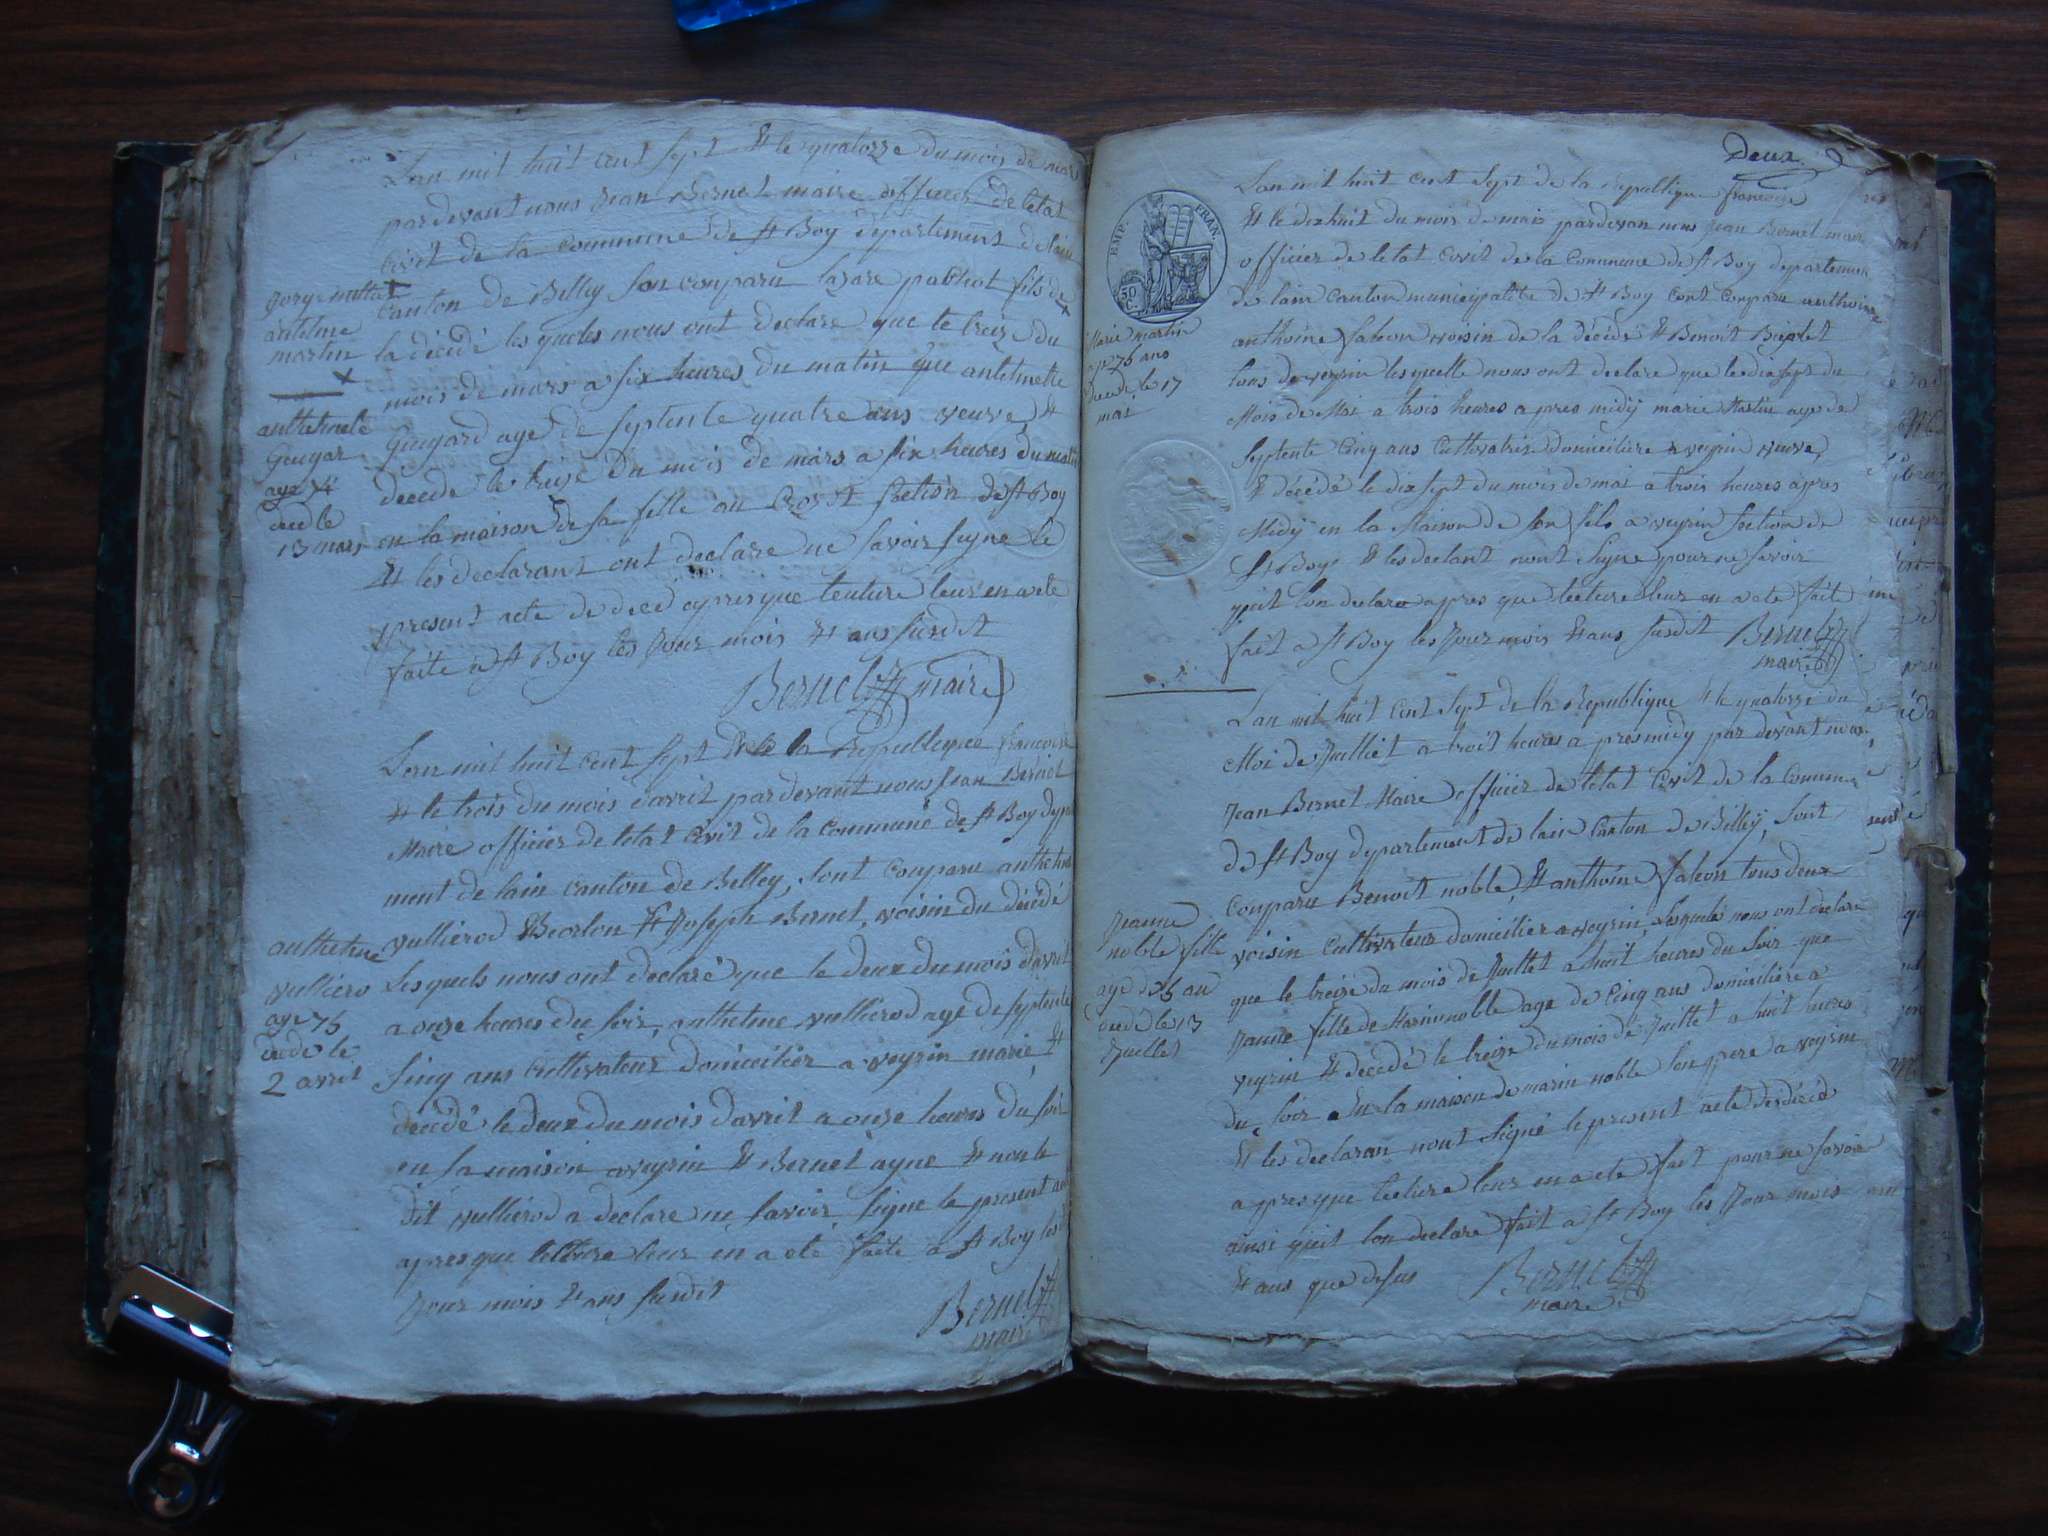 Lan mil huit cent sept & le quatorze du mois de mars
pardevant nous Jean Bernet maire officier de letat
civit de la commune de St Boy departement delain
canton de Belley son comparu lazare fils de
gorge mittat
antelme
martin
la décédé les quels nous ont declare que le treize du
mois de mars a six heures du matin que antelmette
anthelmete
Gougar
age 74
deced le
13 mars
Gougard age de septente quatre ans veuve &
decede le treize du mois de mars a six heures du matin
en la maison de sa fille au section de St Boy
& les declarant ont declare ne savoir signe le
present acte de deced apres que lecture leur en a ete
faite a St Boy les Jour mois & ans susdit
Bernet maire
Lan mil huit cent sept de la Republique francoise
& le trois du mois davrit pardevant nous Jean Bernet
Maire officier de letat civit de la commune de St Boy departe
ment de lain canton de Belley, sont comparu anthelme
vullierod & Joseph Bernet, voisin du décédé
anthelme
vulliero
age 75
decede le
2 avrit
Lesquels nous ont declaré que le deux du mois davrit
a onze heures du soir, anthelme vullierod age de septente
sinq ans cultivateur domicilier a veyrin marie, &
décédé le deux du mois davrit a onze heures du soir
en sa maison a veyrin & Bernet signe & non le
dit vullierod a declare ne savoir signe le present acte
apres que lecture leur en a ete faite a St Boy les
Jour mois & ans susdit
Bernet
maire
Deux
EMP. FRAN.
50 C.
Lan mil huit cent sept de la republique francoise
& le dixhuit du mois de mais pardevan nous Jean Bernet maire
officier de letat civit de la commune de St Boy departemen
de lain canton municipalite de St Boy cont comparu anthoine
anthoine falcon voisin de la décédé & Benoit
tous de veyrin lesquelle nous ont declare que le dix sept du
Marie martin
age 75 ans
decede le 17
mai
Mois de Mai a trois heures a pres midÿ marie Martin aye de
Septente Cinq ans Cultivatrice domiciliere a veyrin veuve,
& décédé le dix sept du mois de mai a trois heures apres
Midÿ en la Maison de son fils a veyrin section de
St Boys & les declant nont signe pour ne savoir
quit lon declare apres que lecture leur en a ete fait
fait a St Boy les Jour mois & ans susdit Bernet
maire
Lan mil huit cent sept de la Republique & le quatorze du
Moi de Julliet a troit heures a pres midy par devant nous
Jean Bernet Maire officier de letat civit de la Commune
de St Boy departement de lain Canton de Billeÿ, sont
Comparu Benoit noble, & anthoine falcon tous deux
voisin Cultivateur domicilier a veyrin, Lesquels nous ont declare
Jeanne
noble fille
age de 5 an
decedé le 13
Juellet
que le treize du mois de Juillet a huit heures du soir que
Jeanne fille de Marin noble age de cinq ans domiciliere a
veyrin & decedé le treize du mois de Juillet a huit heures
du soir En la maison de marin noble son pere a veyrin
& les declaran nont signé le present acte de décéde
apres que lecture leur en a ete fait pour ne savoir
ainsi quit lon declare fait a St Boy les Jour mois
& ans que desus Bernet
maire